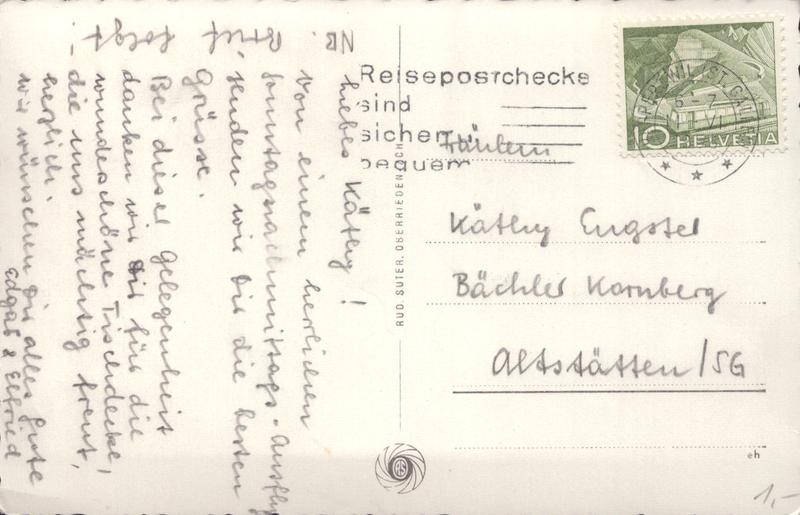 Liebes Käthy!
Von einem herrlichen
Sonntagsnachmittags-Ausflug
senden wir Dir die besten
Grüsse.
Bei dieser Gelegenheit
danken wir Dir für die
wunderschöne Tischdecke,
die uns mächtig freut,
herzlich.
Wir wünschen Dir alles Gute
Edgar & Elfried
NB. Brief folgt
Reisepostchecks
sind
sicher
bequem
HELVETIA
10
Fräulein
Käthy Engster
Bächler Kornberg
Altstätten/SG
RUD. SUTER, OBERRIEDEN-ZCH
RS
eh
1,-